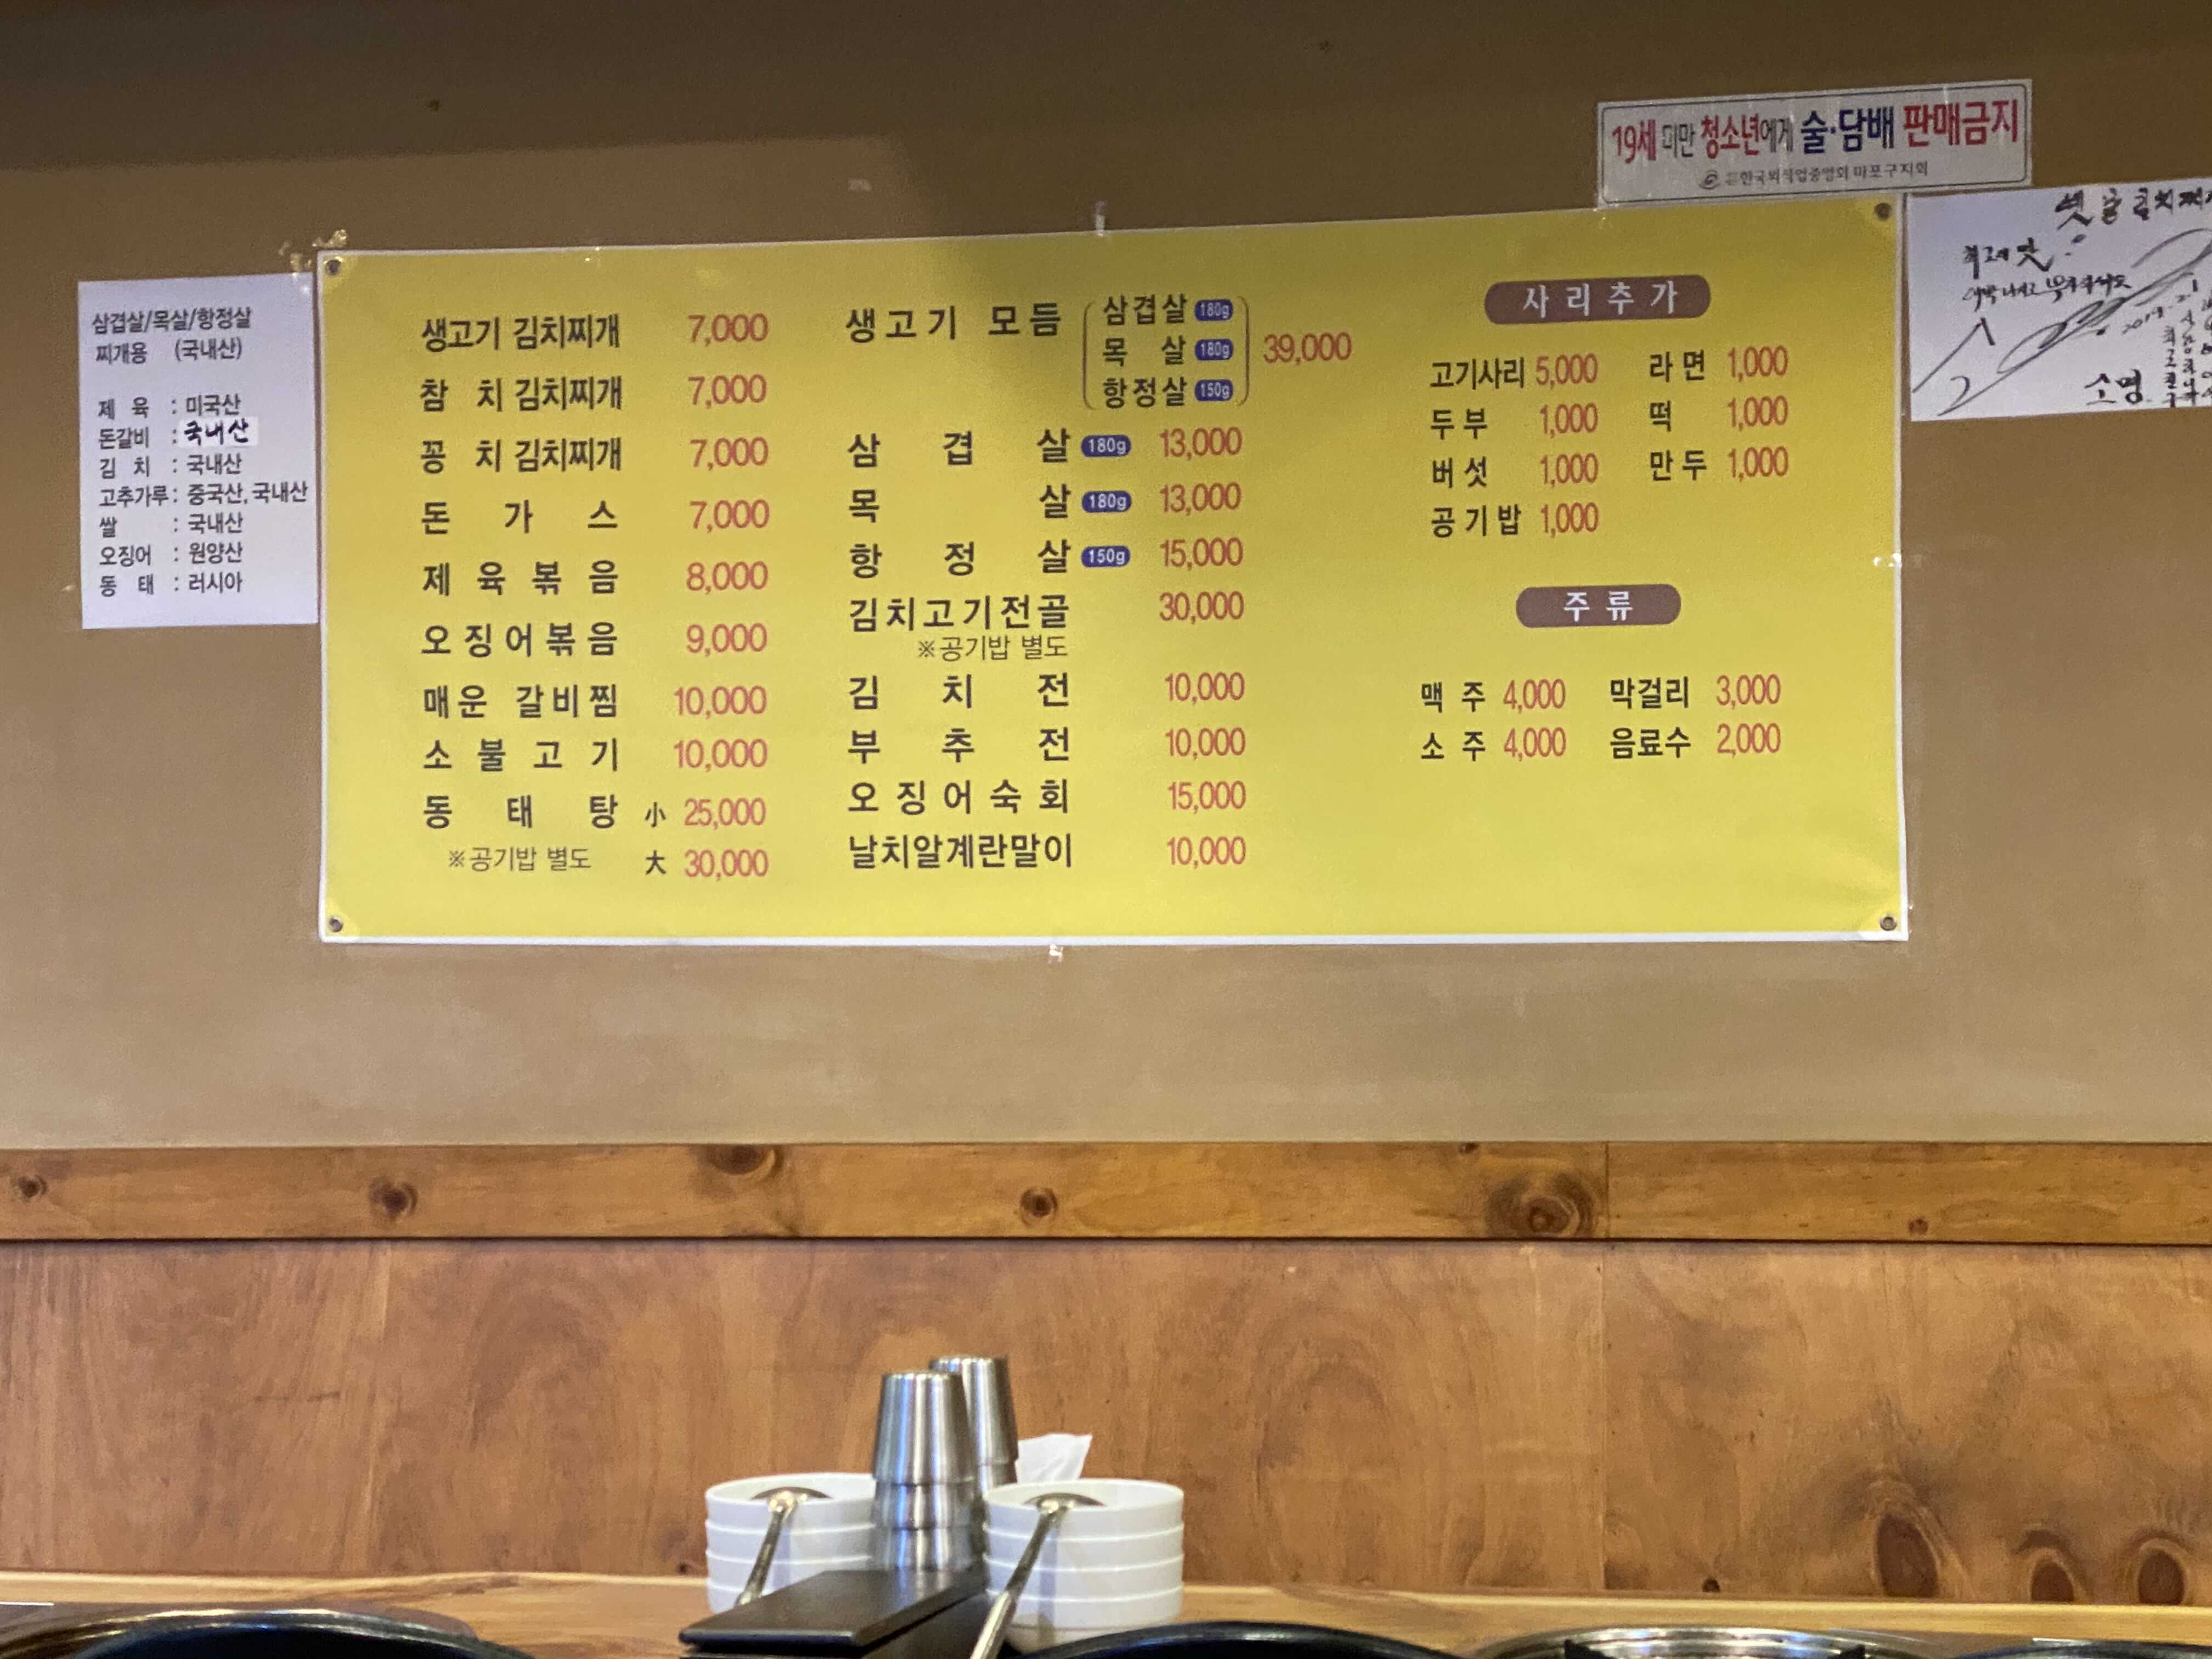 삼겹살/목살/항정살
찌개용 (국내산)
제 육 : 미국산
돈갈비 : 국내산
김 치 : 국내산
고추가루 : 중국산, 국내산
쌀 : 국내산
오징어 : 원양산
동 태 : 러시아
생고기 김치찌개 7,000
참 치 김치찌개 7,000
꽁 치 김치찌개 7,000
돈 가 스 7,000
제 육 볶 음 8,000
오 징 어 볶 음 9,000
매운 갈비찜 10,000
소 불 고 기 10,000
동 태 탕 小 25,000
※공기밥 별도 大 30,000
생고기 모듬
삼겹살 180g
목 살 180g
항정살 150g
39,000
삼 겹 살 180g 13,000
목 살 180g 13,000
항 정 살 150g 15,000
김치고기전골 30,000
※공기밥 별도
김 치 전 10,000
부 추 전 10,000
오 징 어 숙 회 15,000
날치알계란말이 10,000
사 리 추 가
고기사리 5,000 라 면 1,000
두 부 1,000 떡 1,000
버 섯 1,000 만 두 1,000
공 기 밥 1,000
주 류
맥 주 4,000 막걸리 3,000
소 주 4,000 음료수 2,000
19세 미만 청소년에게 술·담배 판매금지
한국외식업중앙회 마포구지회
옛날 김치찌개
최고의 맛
소명